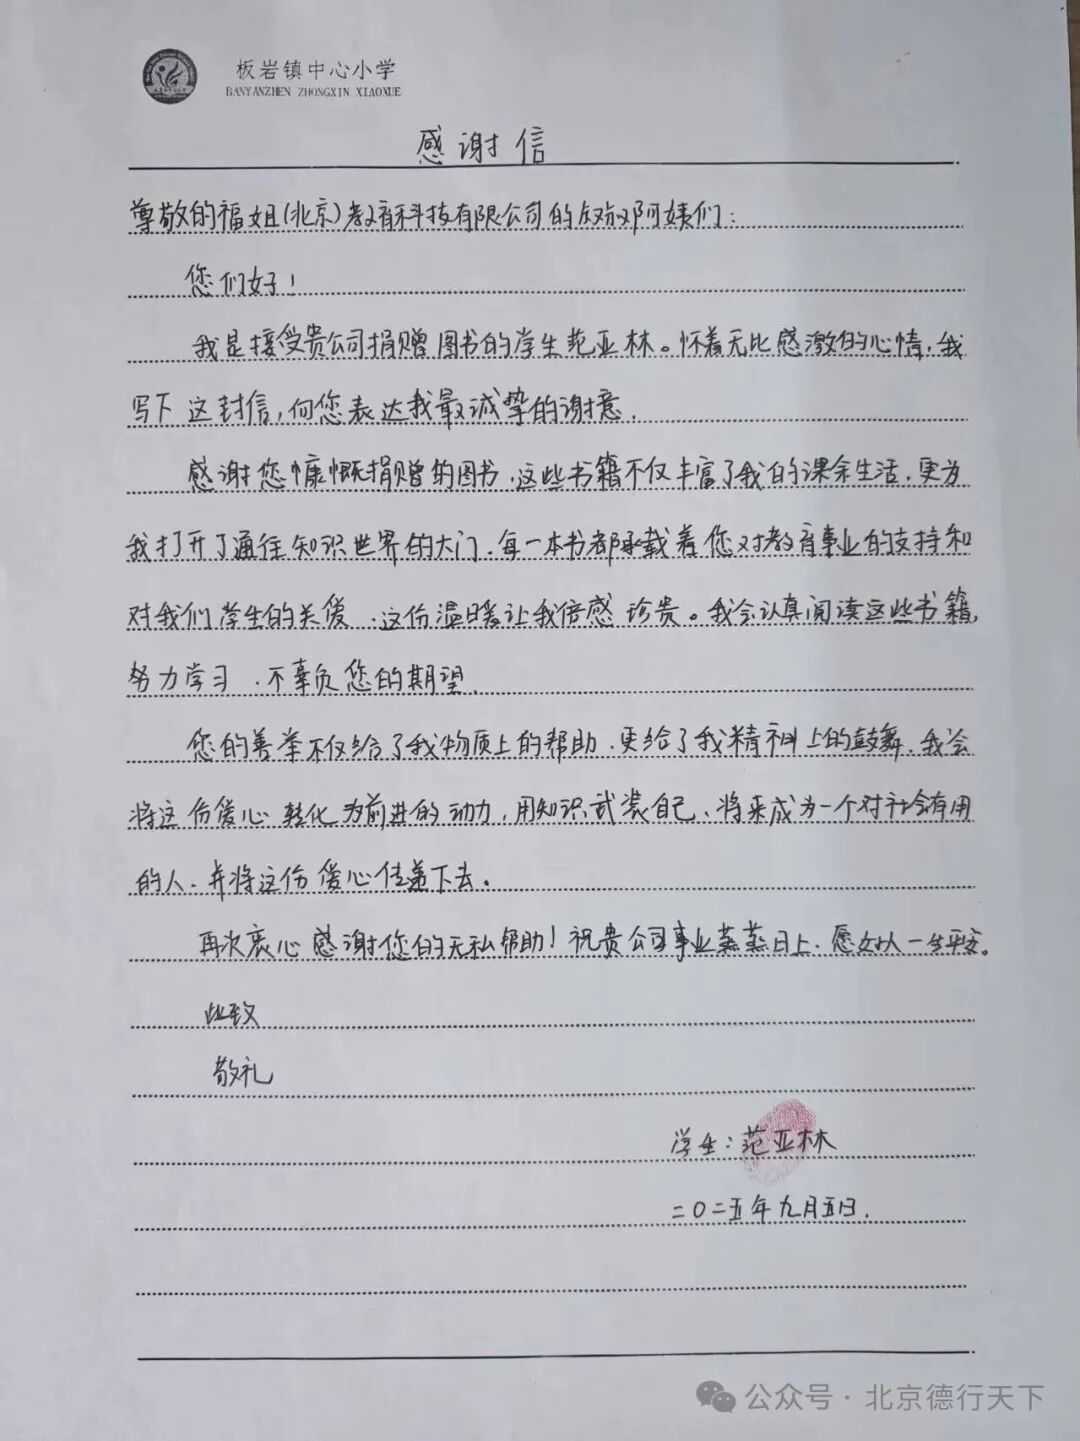 板岩镇中心小学
BANYANZHEN ZHONGXIN XIAOXUE
感谢信
尊敬的福姐(北京)教育科技有限公司的叔叔阿姨们:
您们好!
我是接受贵公司捐赠图书的学生范亚林。怀着无比感激的心情,我
写下这封信,向您表达我最诚挚的谢意.
感谢您慷慨捐赠的图书.这些书籍不仅丰富了我的课余生活.更为
我打开了通往知识世界的大门.每一本书都承载着您对教育事业的支持和
对我们学生的关爱.这份温暖让我倍感珍贵。我会认真阅读这些书籍,
努力学习.不辜负您的期望.
您的善举不仅给了我物质上的帮助.更给了我精神上的鼓舞.我会
将这份爱心转化为前进的动力,用知识武装自己.将来成为一个对社会有用
的人.并将这份爱心传递下去。
再次衷心感谢您的无私帮助!祝贵公司事业蒸蒸日上.愿好人一生平安。
此致
敬礼
学生:范亚林
二0二五年九月五日.
公众号·北京德行天下